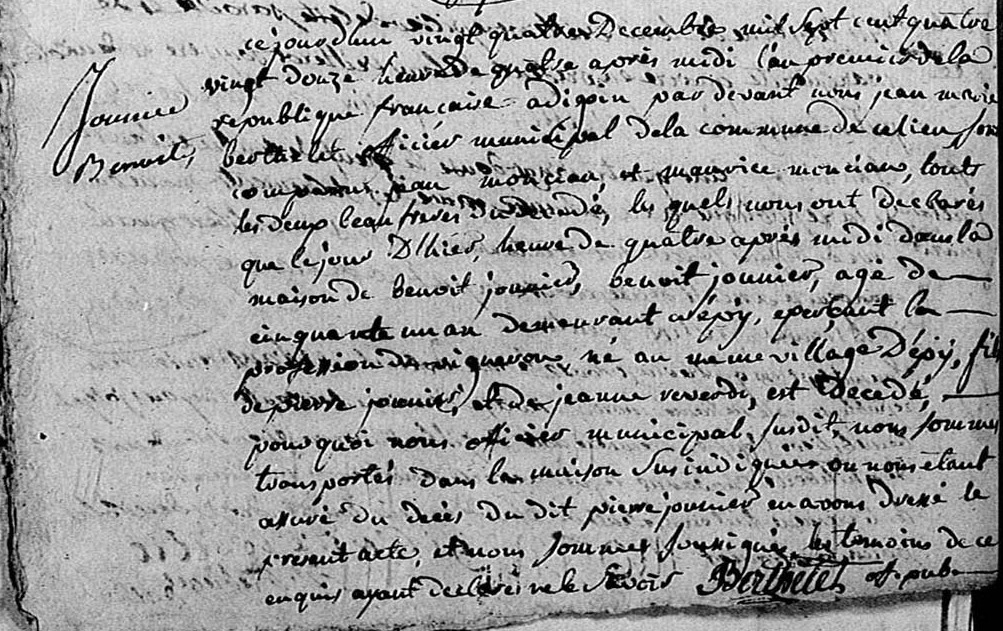 ce jourdhui vingt quatre Decembre mil sept cent quatre
vingt douze heure de quatre après midi l'an premier de la
Jounier
republique française a digoin par devant nous jean marie
Benoit
berthelet officier municipal de la commune de ce lieu sont
comparus jean monciau, et maurice monciau, touts
les deux beau freres du decedé, les quels nous ont declarés
que le jour D'hier, heure de quatre après midi dans la
maison de benoit jounier, benoit jounier, agé de
cinquante un an demeurant a épy, exerçant la
profession de vigneron, né au meme village D'épy, fils
de pierre jounier, et de jeanne reverdi, est Decedé,
pourquoi nous officier municipal susdit, nous sommes
transportés dans la maison sus indiquée ou nous étant
assuré du decés du dit pierre jounier en avons dressé le
present acte, et nous sommes soussigné, les temoins de ce
enquis ayant declarés ne le sçavoir Berthelet of. pub.